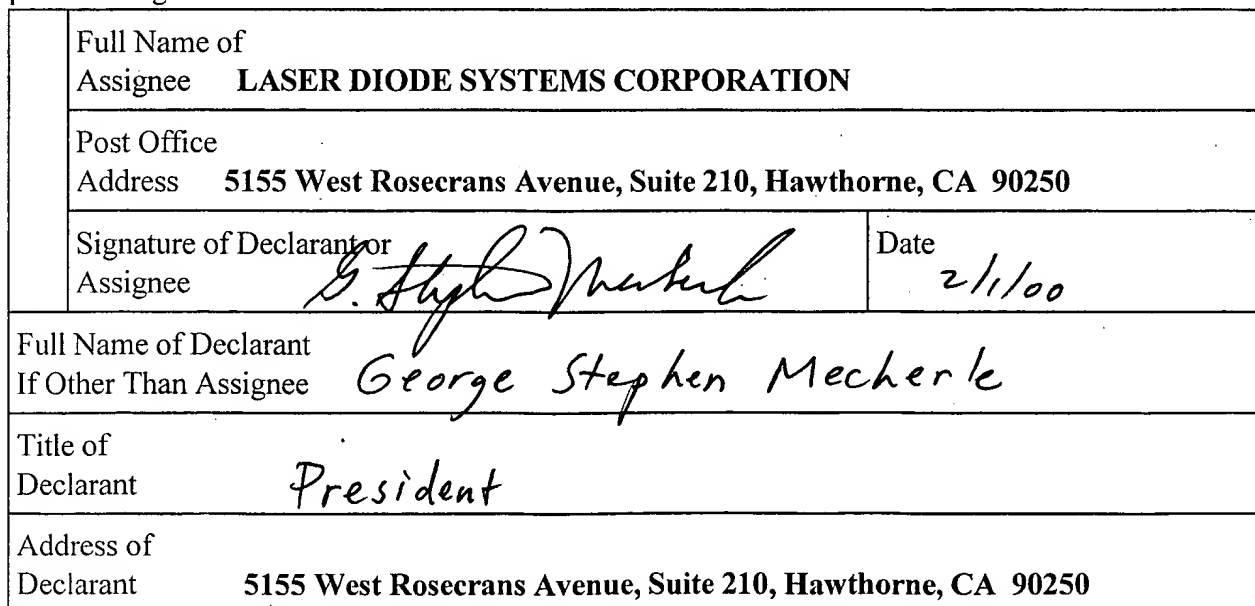 Full Name of
Assignee LASER DIODE SYSTEMS CORPORATION
Post Office
Address 5155 West Rosecrans Avenue, Suite 210, Hawthorne, CA 90250
Signature of Declarant or
Assignee G. Stephen Mecherle
Date
2/1/00
Full Name of Declarant
If Other Than Assignee George Stephen Mecherle
Title of
Declarant President
Address of
Declarant 5155 West Rosecrans Avenue, Suite 210, Hawthorne, CA 90250